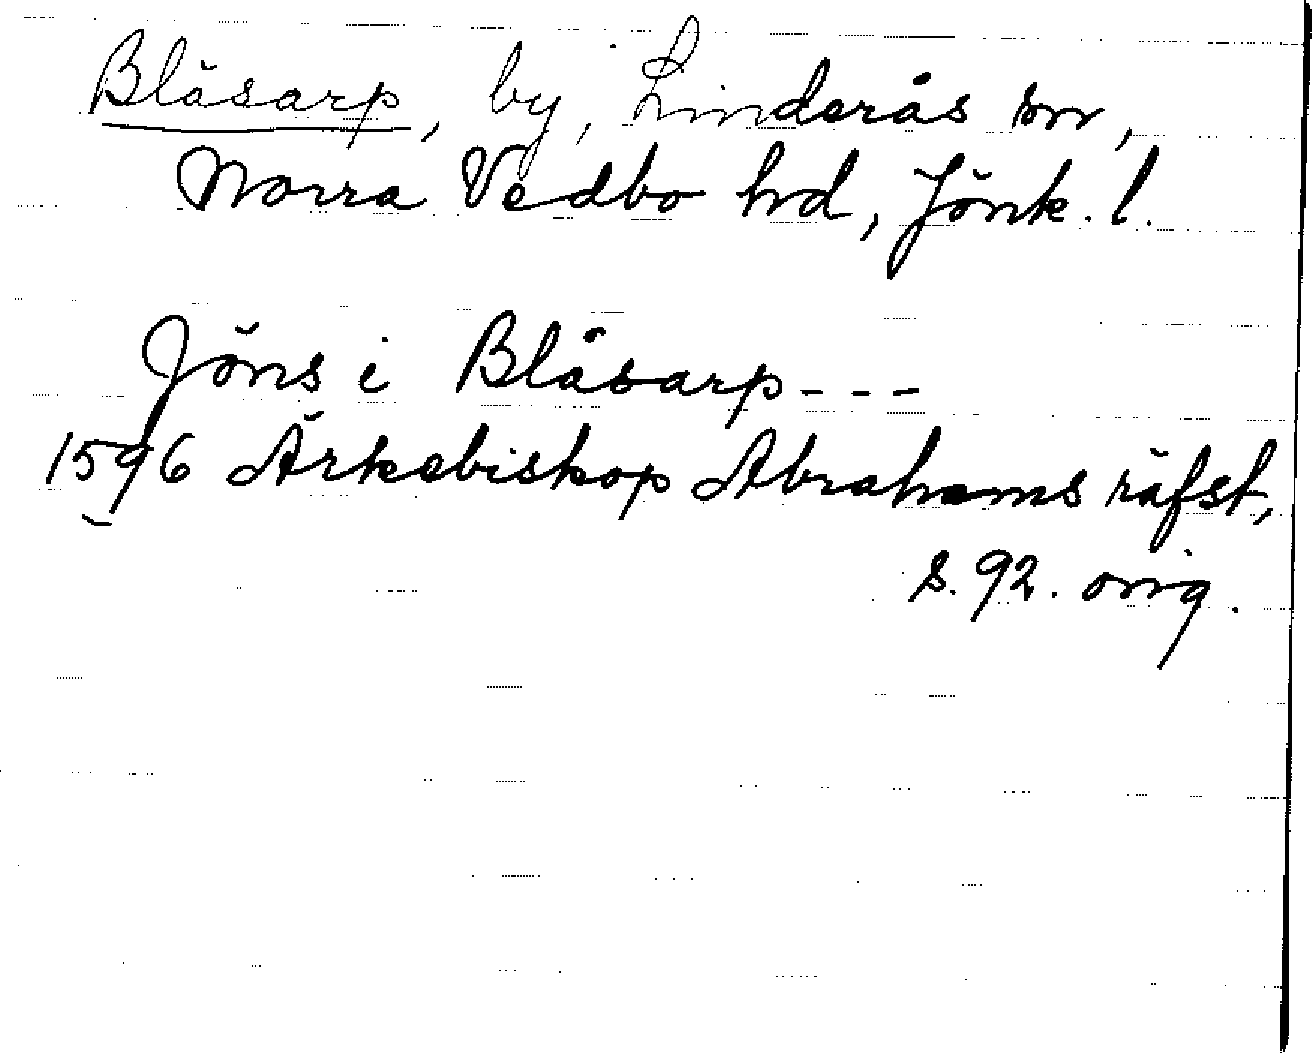 Blåsarp, by, Linderås sn,
Norra Vedbo hd, Jönk. l.
Jöns i Blåsarp - - -
1596 Ärkebiskop Abrahams räfst,
s. 92. orig.